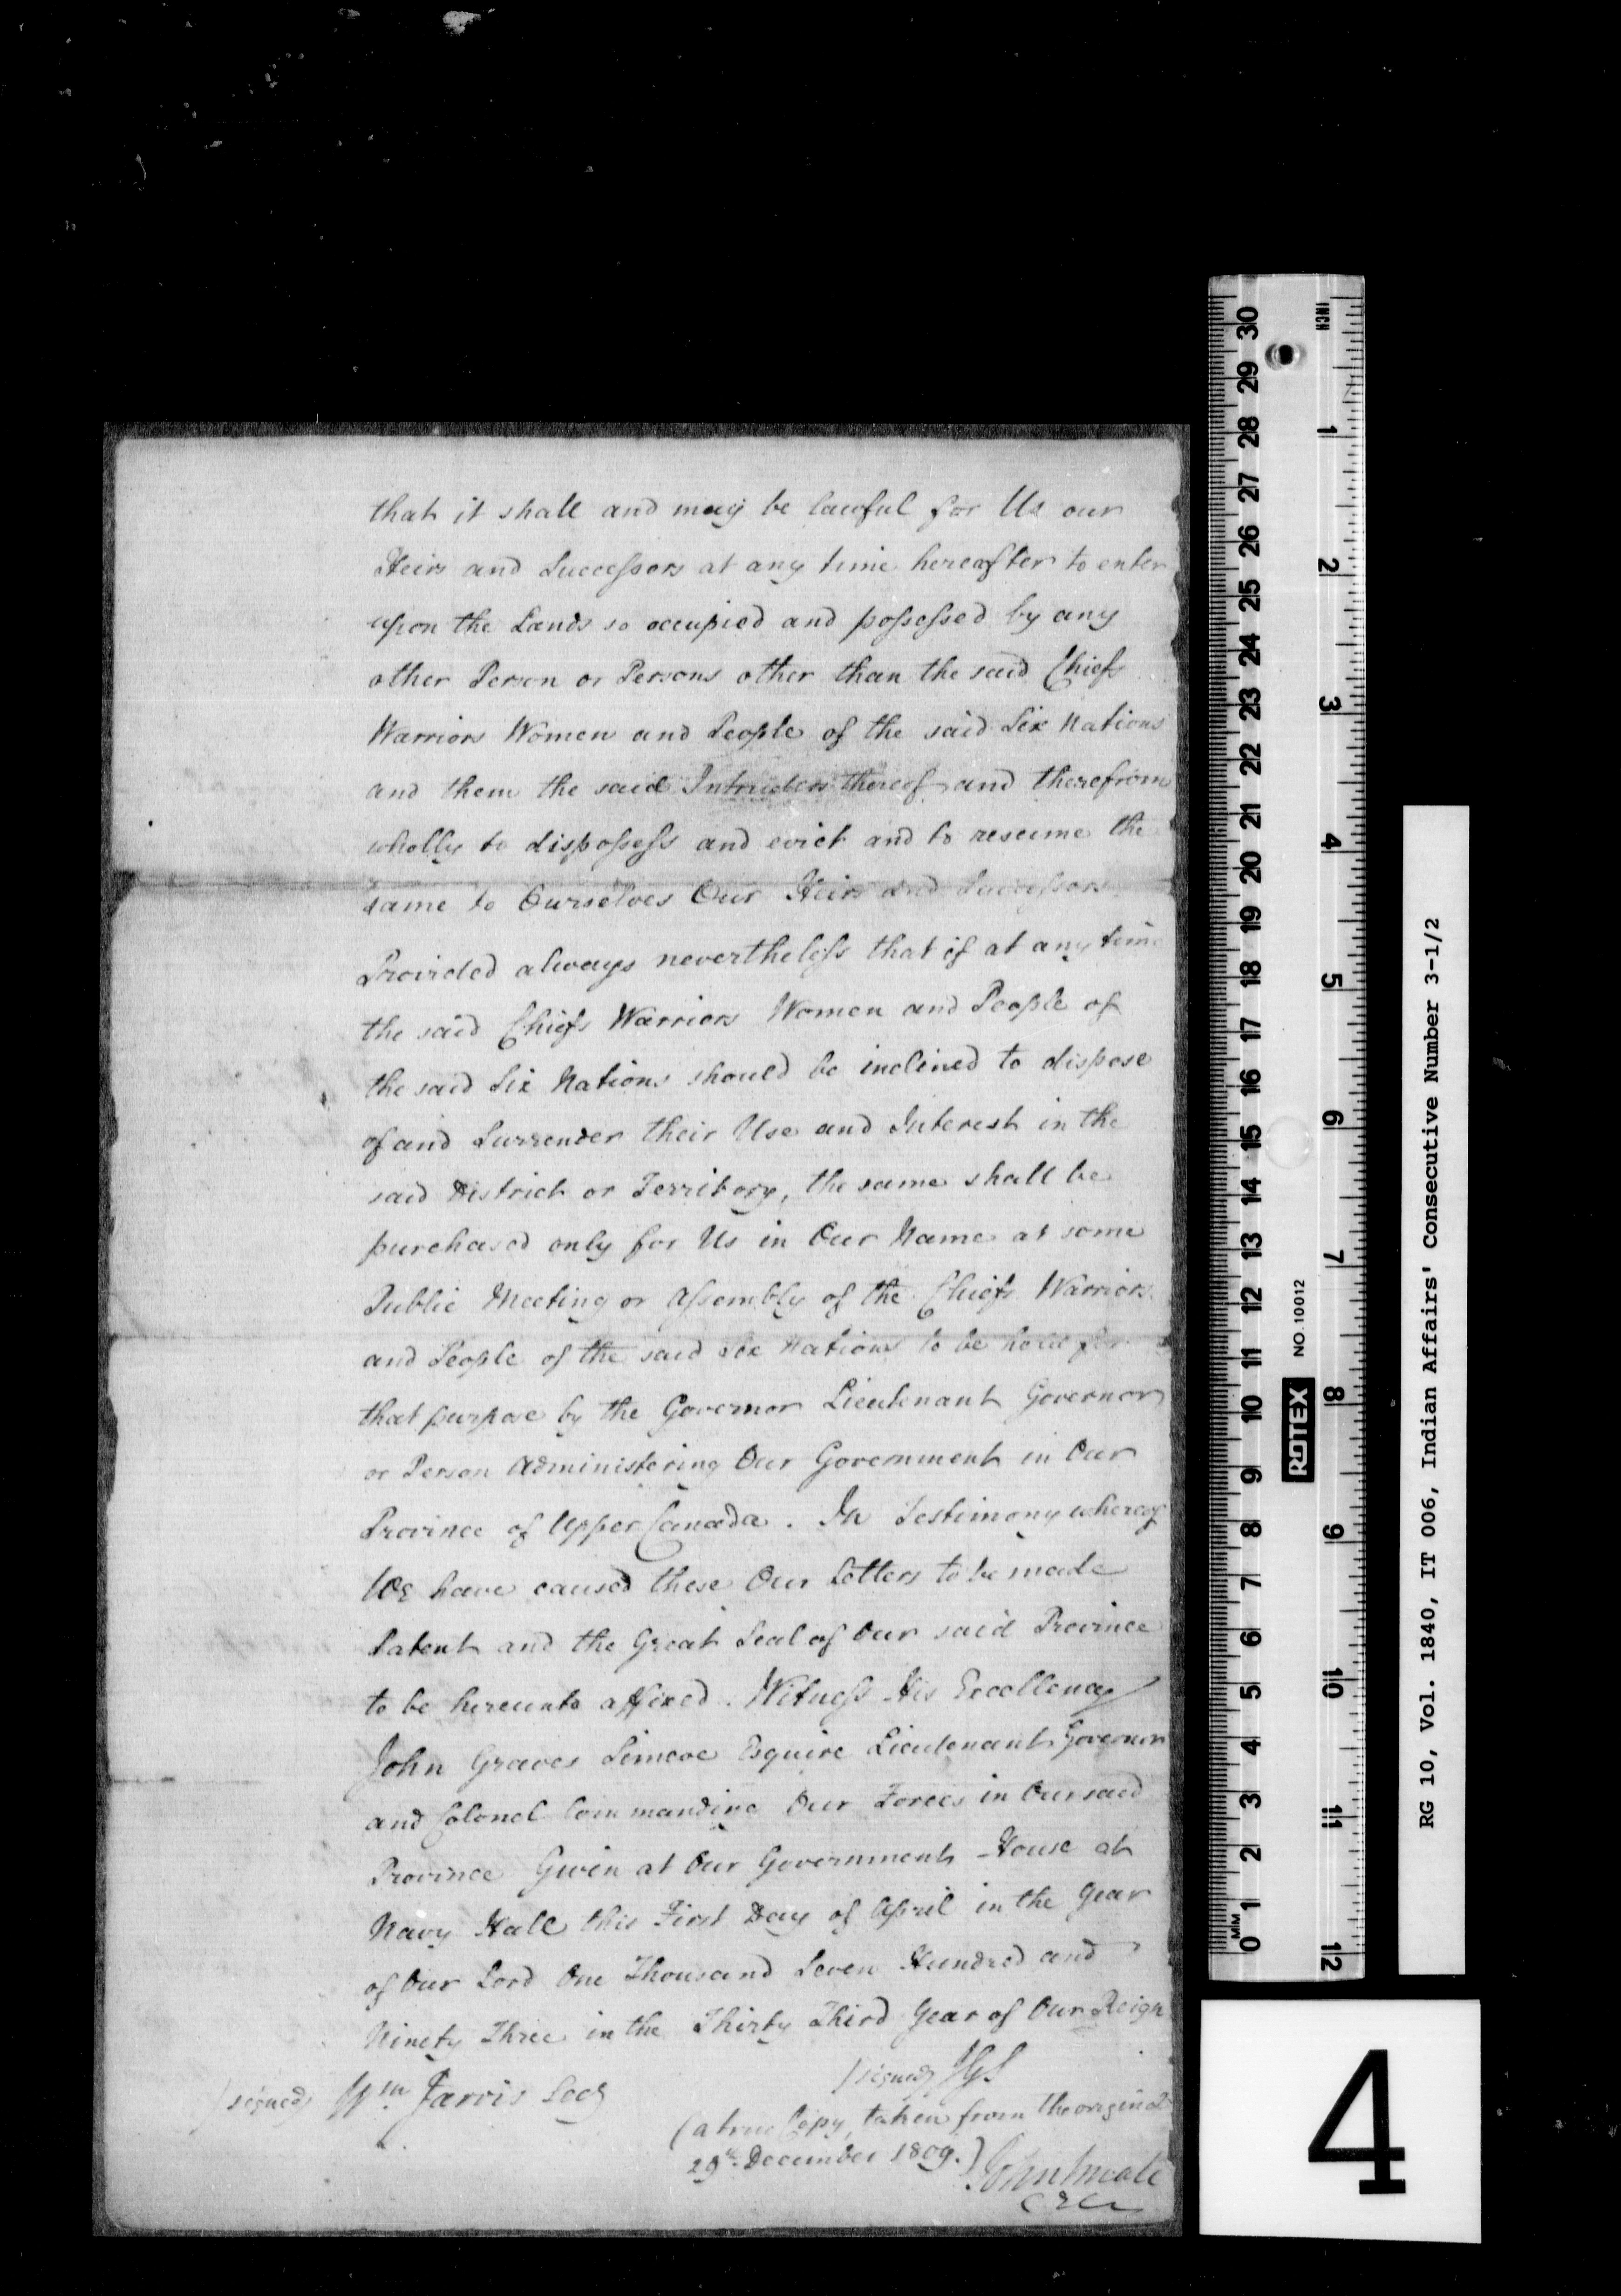 that it shall and may be lawful for Us our
Heirs and Successors at any time hereafter to enter
upon the Lands so occupied and possessed by any
other Person or Persons other than the said Chiefs
Warriors Women and People of the said Six Nations
and them the said Intruders thereof and therefrom
wholly to dispossess and evict and to resume the
same to Ourselves Our Heirs and Successors
Provided always nevertheless that if at any time
the said Chiefs Warriors Women and People of
the said Six Nations should be inclined to dispose
of and Surrender their Use and Interest in the
said District or Territory, the same shall be
purchased only for Us in Our Name at some
Public Meeting or Assembly of the Chiefs Warriors
and People of the said Six Nations to be held for
that purpose by the Governor Lieutenant Governor
or Person Administering Our Government in Our
Province of Upper Canada. In Testimony whereof
We have caused these Our Letters to be made
Patent and the Great Seal of Our said Province
to be hereunto affixed. Witness His Excellency
John Graves Simcoe Esquire Lieutenant Governor
and Colonel Commanding Our Forces in Our said
Province Given at Our Government House at
Navy Hall this First Day of April in the Year
of Our Lord One Thousand Seven Hundred and
Ninety Three in the Thirty Third Year of Our Reign
/signed/ JGS
/signed/ Wm Jarvis Secy
(a true Copy, taken from the original
29th December 1809.)
RG 10, Vol. 1840, IT 006, Indian Affairs' Consecutive Number 3-1/2
4
INCH
1 2 3 4 5 6 7 8 9 10 11 12
MM
0 1 2 3 4 5 6 7 8 9 10 11 12 13 14 15 16 17 18 19 20 21 22 23 24 25 26 27 28 29 30
ROTEX NO. 10012